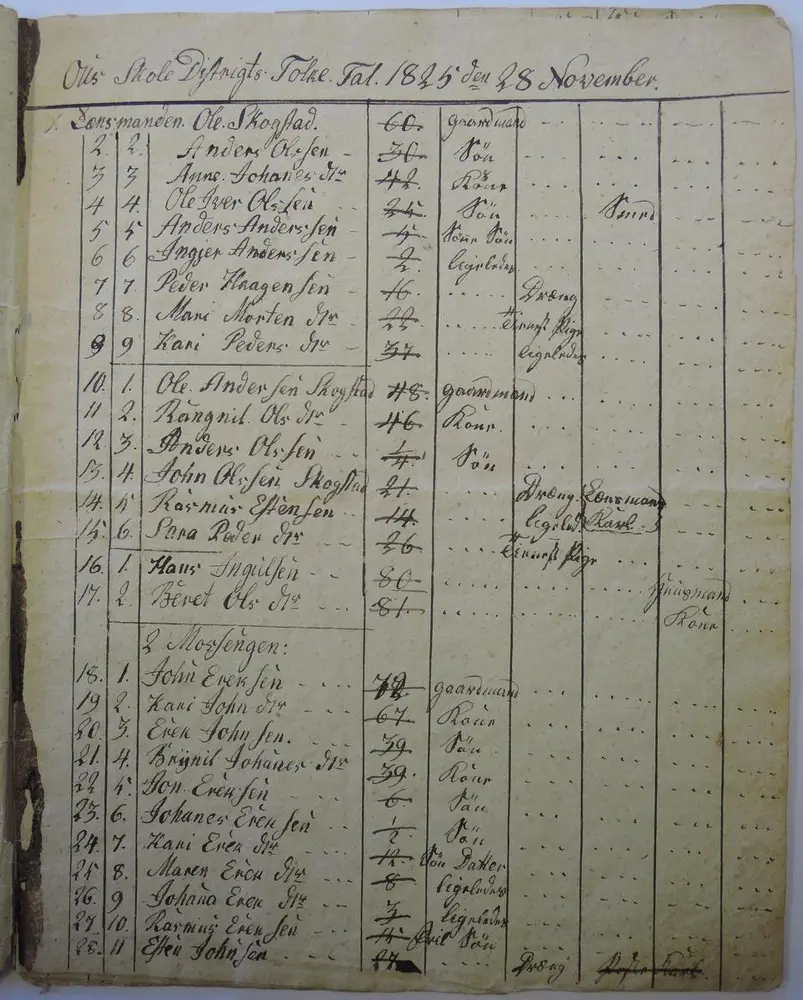 Ous Skole Dystrigts Folke. Tal. 1825 den 28 November.
1. Lænsmanden. Ole. Skogstad. 60. gaardmand
2. 2. Anders Olssen 30. Sön
3 3 Anne Johanes dtr 42. Kone
4 4. Ole Iver Olssen 25. Sön Smed
5 5 Anders Anderssen 5 Sönne Sön
6 6 Ingier Anderssen 2. ligeledes
7 7. Peder Haagensen 16 Dræng
8 8. Mari Morten dtr 22 Tienest Pige
9 9 Kari Peders dtr 37 ligeledes
10. 1. Ole Andersen Skogstad 48. gaardmand
11 2. Rangnil Ols dtr 46 Kone
12 3. Anders Olssen 1/4 Sön
13. 4 John Olssen Skogstad 21. Dræng. Lænsmand
14. 5 Rasmus Estensen 14. ligeled Karl
15. 6. Sara Peder dtr 26 Tienest Pige
16. 1. Hans Ingulsen 80 Huusmand
17. 2. Beret Ols dtr 81. Kone
2 Mossengen:
18. 1. John Ereksen 72 gaardmand
19 2. Kari John dtr 67 Kone
20. 3. Erek Johnsen. 39 Sön
21. 4. Brynil Johanes dtr 39. Kone
22 5. Jon Ereksen 6 Sön
23. 6. Johanes Ereksen 1/2 Sön
24. 7. Kari Erek dtr 12. Sön Datter
25 8. Maren Erek dtr 8 ligeledes
26. 9 Johana Erek dtr 3 ligeledes
27 10. Rasmus Ereksen 15 Sön
28. 11 Esten Johnsen 27 Dræng